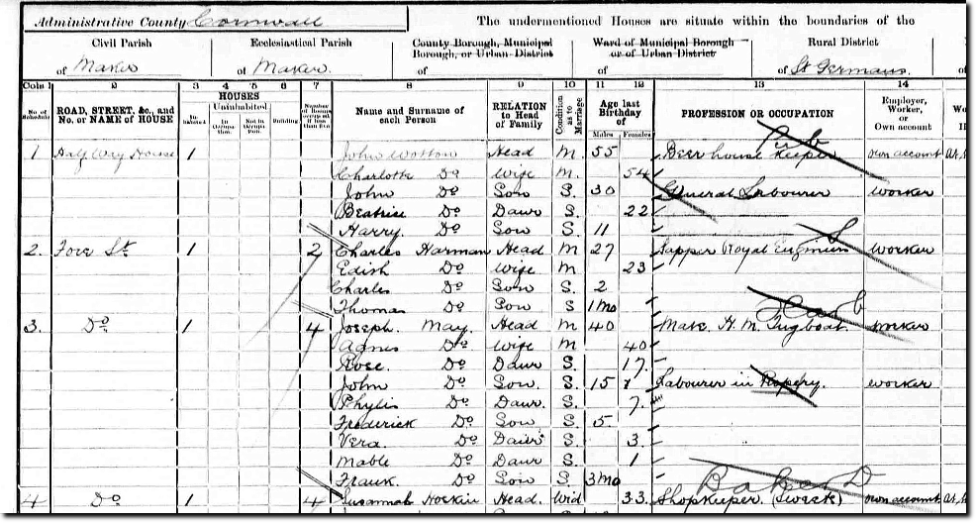 Administrative County Cornwall The undermentioned Houses are situate within the boundaries of the
Civil Parish Ecclesiastical Parish County Borough, Municipal Borough, or Urban District Ward of Municipal Borough or of Urban District Rural District
of Maker of Maker. of of of St Germans.
Cols 1 2 3 4 5 6 7 8 9 10 11 12 13 14
No. of Schedule ROAD, STREET, &c., and No. or NAME of HOUSE HOUSES In-habited Uninhabited In Occupation Not in Occupation Building Number of Rooms occupied if less than five Name and Surname of each Person RELATION to Head of Family Condition as to Marriage Age last Birthday of Males Females PROFESSION OR OCCUPATION Employer, Worker, or Own account
1 Half Way House 1 John Head M. 55 Beer house Keeper own account
Charlotte Do Wife M. 54
John Do Son S. 30 General Labourer worker
Beatrice Do Daur S. 22
Harry. Do Son S. 11
2. Fore St. 1 2 Charles Harman Head M 27 Sapper Royal Engineers worker
Edith Do Wife M 23
Charles Do Son S. 2
Thomas Do Son S. 1 Mo
3. Do 1 4 Joseph. May. Head M 40 Mate. H. M. Tugboat worker
Agnes Do Wife M 40
Rose. Do Daur S. 17.
John Do Son. S. 15 Labourer in Ropery. worker
Phylis Do Daur. S. 7.
Frederick Do Son S. 5.
Vera Do Daur S. 3.
Mable Do Daur S. 1
Frank. Do Son S. 3 Mo
Baker
4 Do 1 4 Susannah Hockin Head. Wid 33. Shopkeeper. own account